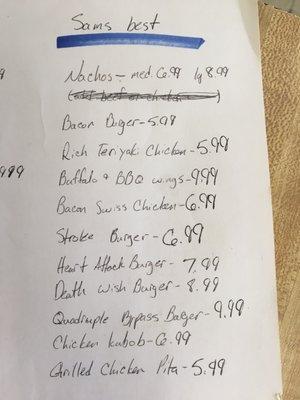 Sams best
Nachos - med. 6.99 lg 8.99
(add beef or chicken)
Bacon Burger - 5.99
Rich Teriyaki Chicken - 5.99
Buffalo & BBQ wings - 9.99
Bacon Swiss Chicken - 6.99
Stroke Burger - 6.99
Heart Attack Burger - 7.99
Death Wish Burger - 8.99
Quadruple Bypass Burger - 9.99
Chicken kabob - 6.99
Grilled Chicken Pita - 5.99